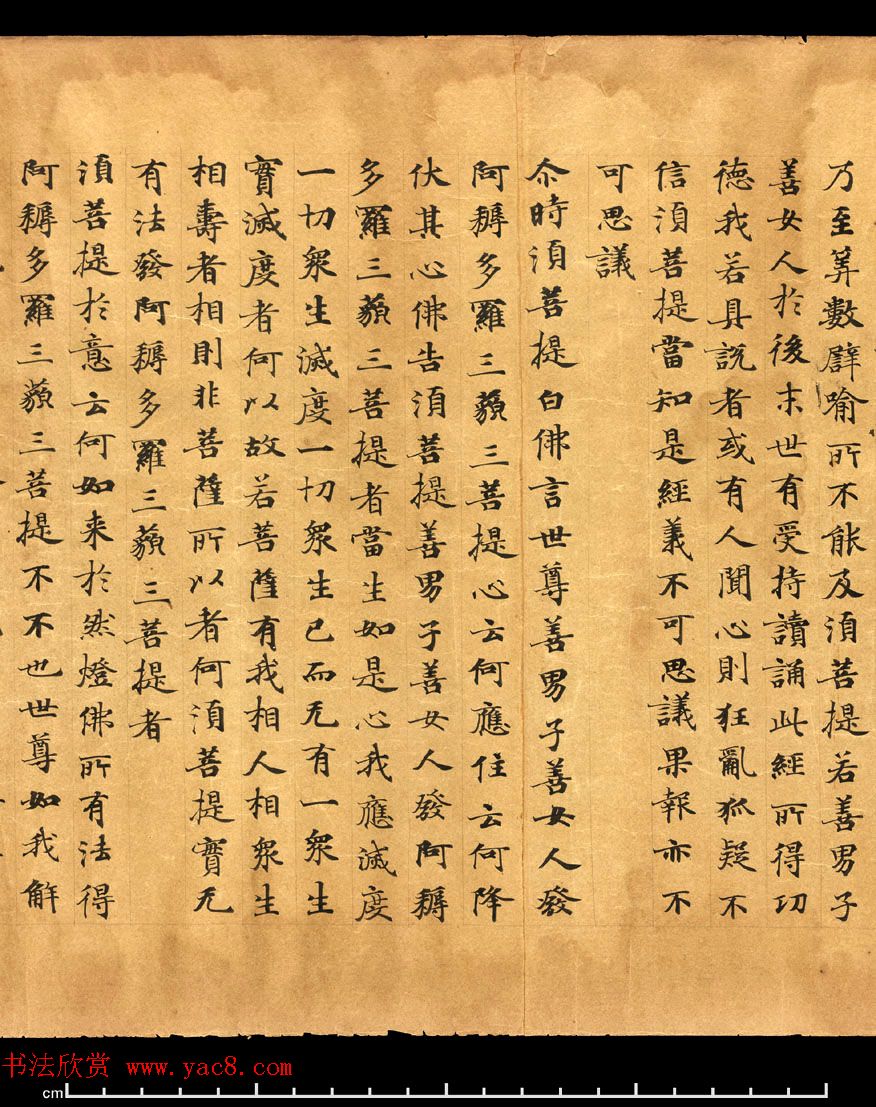 乃至筭數譬喻所不能及須菩提若善男子
善女人於後末世有受持讀誦此經所得功
德我若具說者或有人聞心則狂亂狐疑不
信須菩提當知是經義不可思議果報亦不
可思議
尒時須菩提白佛言世尊善男子善女人發
阿耨多羅三藐三菩提心云何應住云何降
伏其心佛告須菩提善男子善女人發阿耨
多羅三藐三菩提者當生如是心我應滅度
一切眾生滅度一切眾生已而无有一眾生
實滅度者何以故若菩薩有我相人相眾生
相壽者相則非菩薩所以者何須菩提實无
有法發阿耨多羅三藐三菩提者
須菩提於意云何如来於然燈佛所有法得
阿耨多羅三藐三菩提不不也世尊如我解
书法欣赏 www.yac8.com
cm